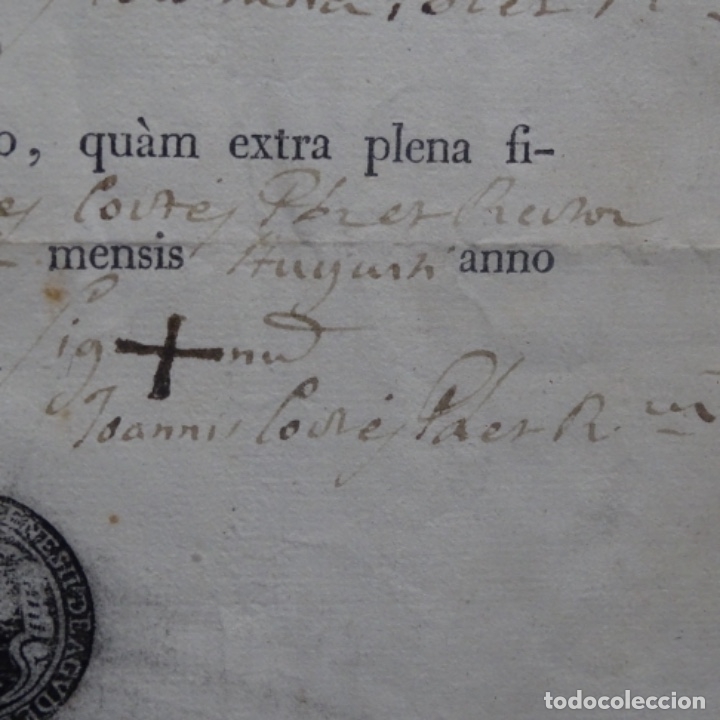 o, quàm extra plena fi-
Cortes Pbr et Rector
mensis Augusti anno
Sig+num
Joannis Cortes Pbr et R.
todocoleccion
todocoleccion.net